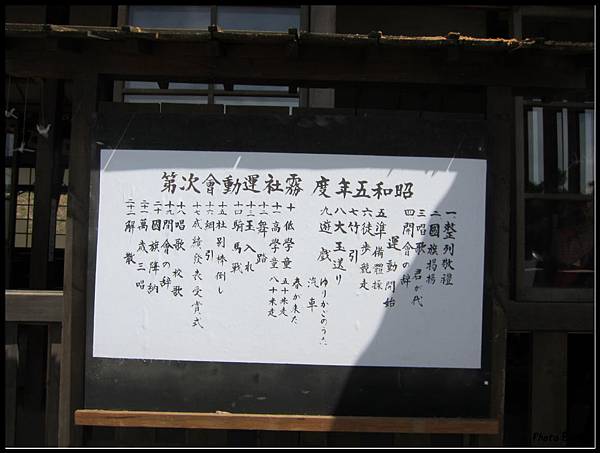 昭和五年度 霧社運動會次第
一 整列敬禮
二 國旗揭揚
三 唱歌 君が代
四 開會の辞
運動開始
五 準備體操
六 徒歩競走
七 竹引
八 大玉送り
九 遊戲
ゆりかごのうた
汽車
春が来た
十 低學童 五十米走
十一 高學童 八十米走
十二 舞踏
十三 玉入れ
十四 騎馬戰
十五 社別棒倒し
十六 綱引
十七 成績發表受賞式
十八 唱歌 校歌
十九 閉會の辞
二十 國旗降納
二十一 萬歳三唱
二十二 解散